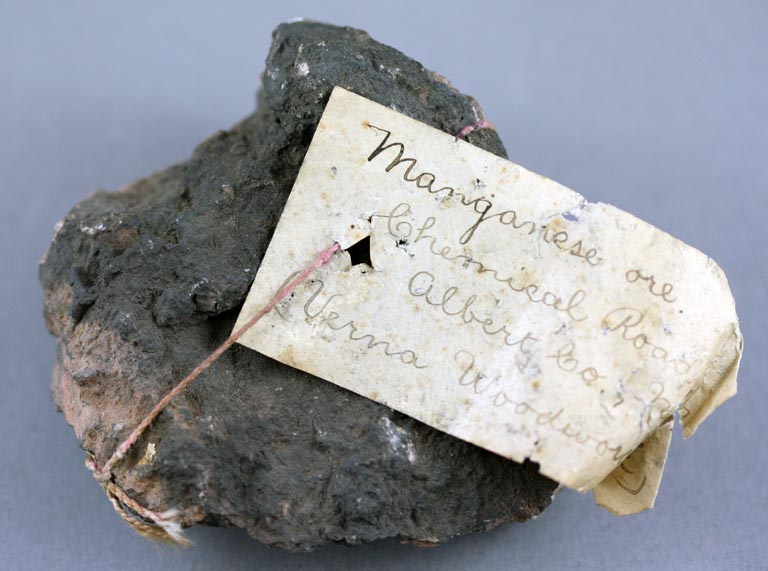 Manganese ore
Chemical Road
Albert Co.,
(Verna